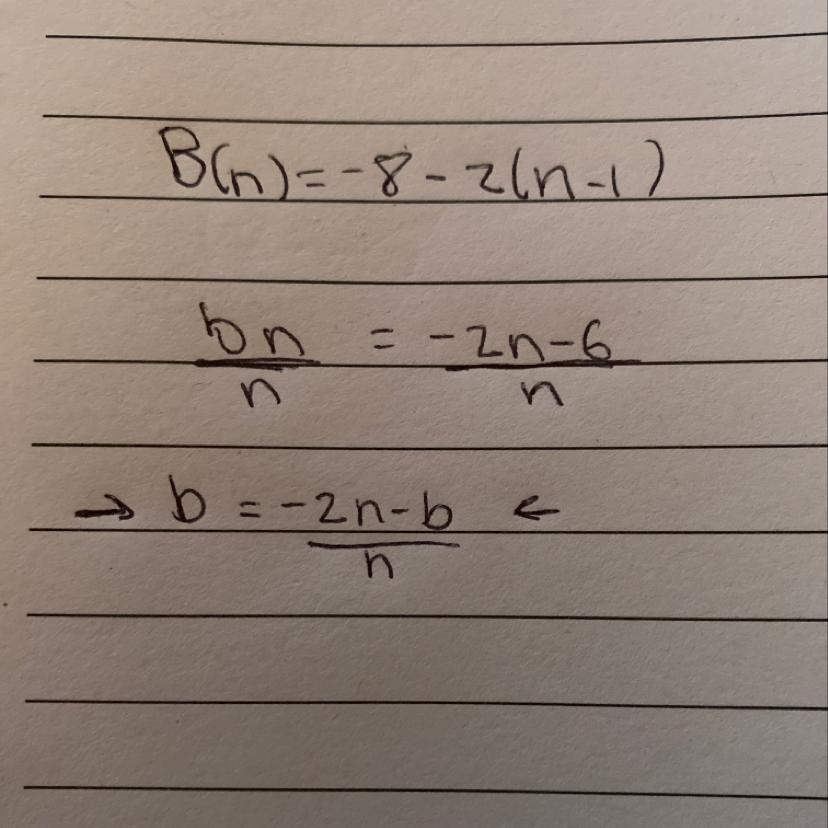 B(n)=-8-2(n-1)
bn = -2n-6
n n
→ b = -2n-b ←
n